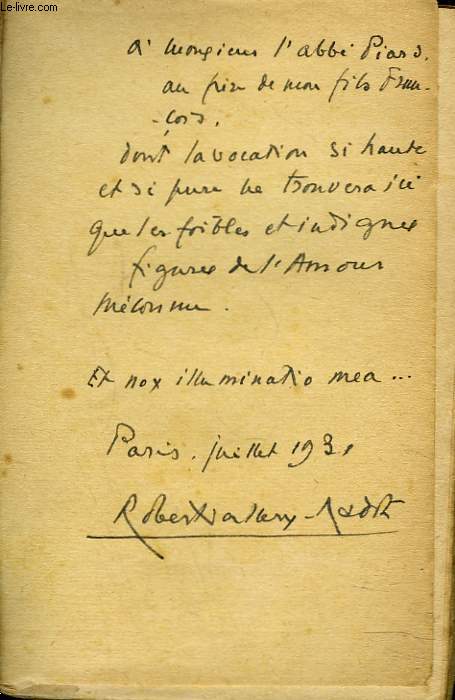 © Le-livre.com
à Monsieur l'abbé Piard,
au père de mon fils Fran-
-çois,
dont la vocation si haute
et si pure ne trouvera ici
que les foibles et indignes
figures de l'Amour
Méconnu.
Et nox illuminatio mea...
Paris. juillet 1931
Robert Vallery-Radot